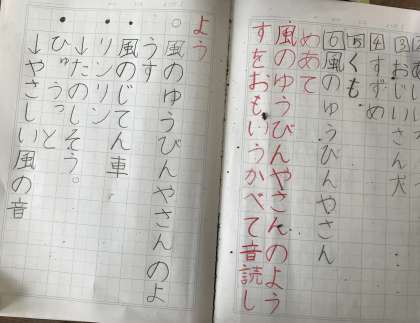 ③おじいさん犬
④すずめ
⑤くも
⑥風のゆうびんやさん
めあて
風のゆうびんやさんのよう
すをおもいうかべて音読し
よう
○風のゆうびんやさんのよ
うす
・風のじてん車
・リンリン
↓たのしそう。
・ひゅうっと
↓やさしい風の音